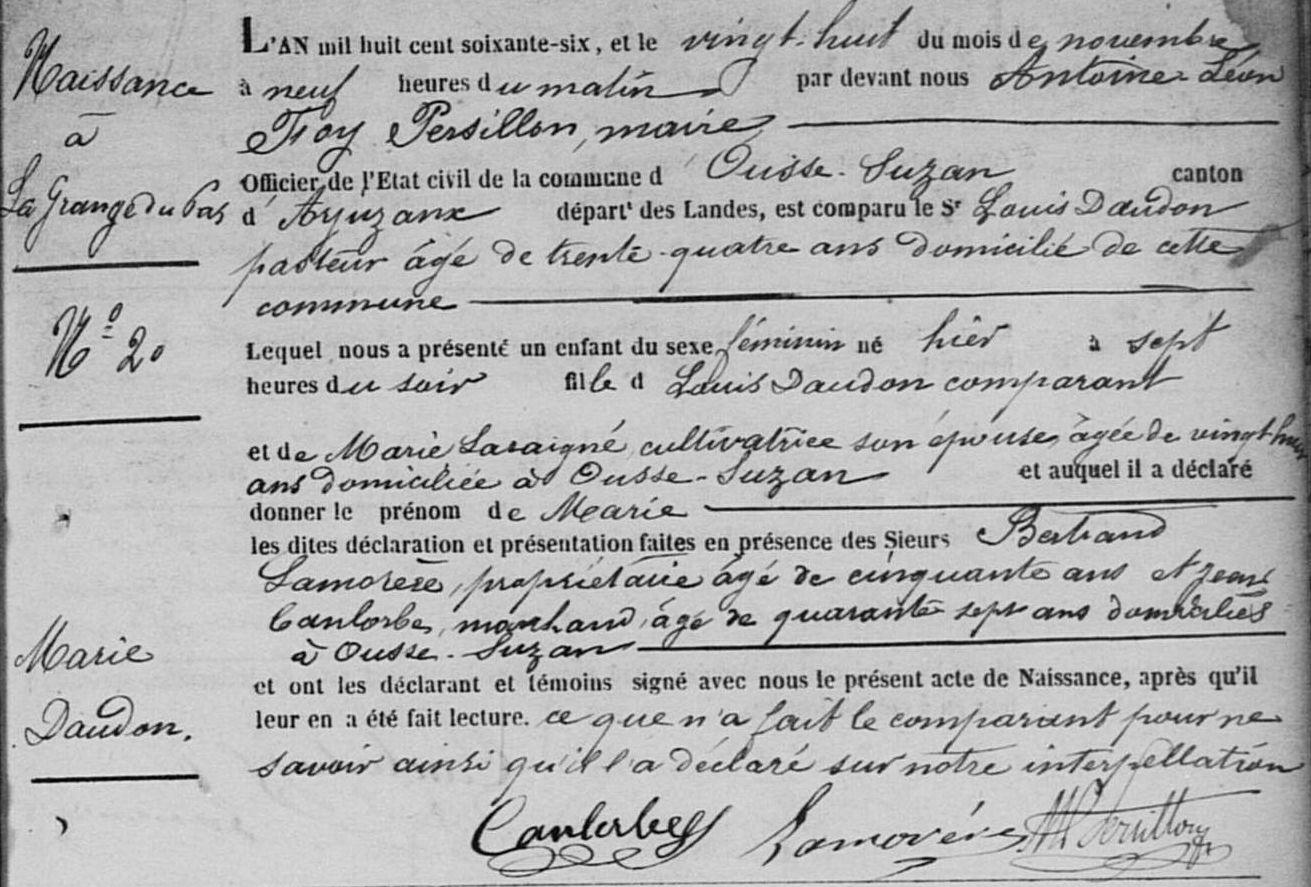 Naissance
à
La Grange du Pas
N.º 20
Marie
Daudon.
L'AN mil huit cent soixante-six, et le vingt-huit du mois de novembre
à neuf heures du matin par devant nous Antoine Léon
Foy Persillon, maire
Officier de l'Etat civil de la commune d Ousse-Suzan canton
d' Arjuzanx départ.t des Landes, est comparu le S.r Louis Daudon
pasteur âgé de trente-quatre ans domicilié de cette
commune
Lequel nous a présenté un enfant du sexe féminin né hier à sept
heures du soir fille d Louis Daudon comparant
et de Marie Laraigné, cultivatrice son épouse, âgée de vingt-huit
ans domiciliée à Ousse-Suzan et auquel il a déclaré
donner le prénom de Marie
les dites déclaration et présentation faites en présence des Sieurs Bertrand
Lamorère, propriétaire âgé de cinquante ans et Jean
Canlorbe, marchand, âgé de quarante sept ans domiciliés
à Ousse-Suzan
et ont les déclarant et témoins signé avec nous le présent acte de Naissance, après qu'il
leur en a été fait lecture. ce que n'a fait le comparant pour ne
savoir ainsi qu'il l'a déclaré sur notre interpellation
Canlorbe Lamorère